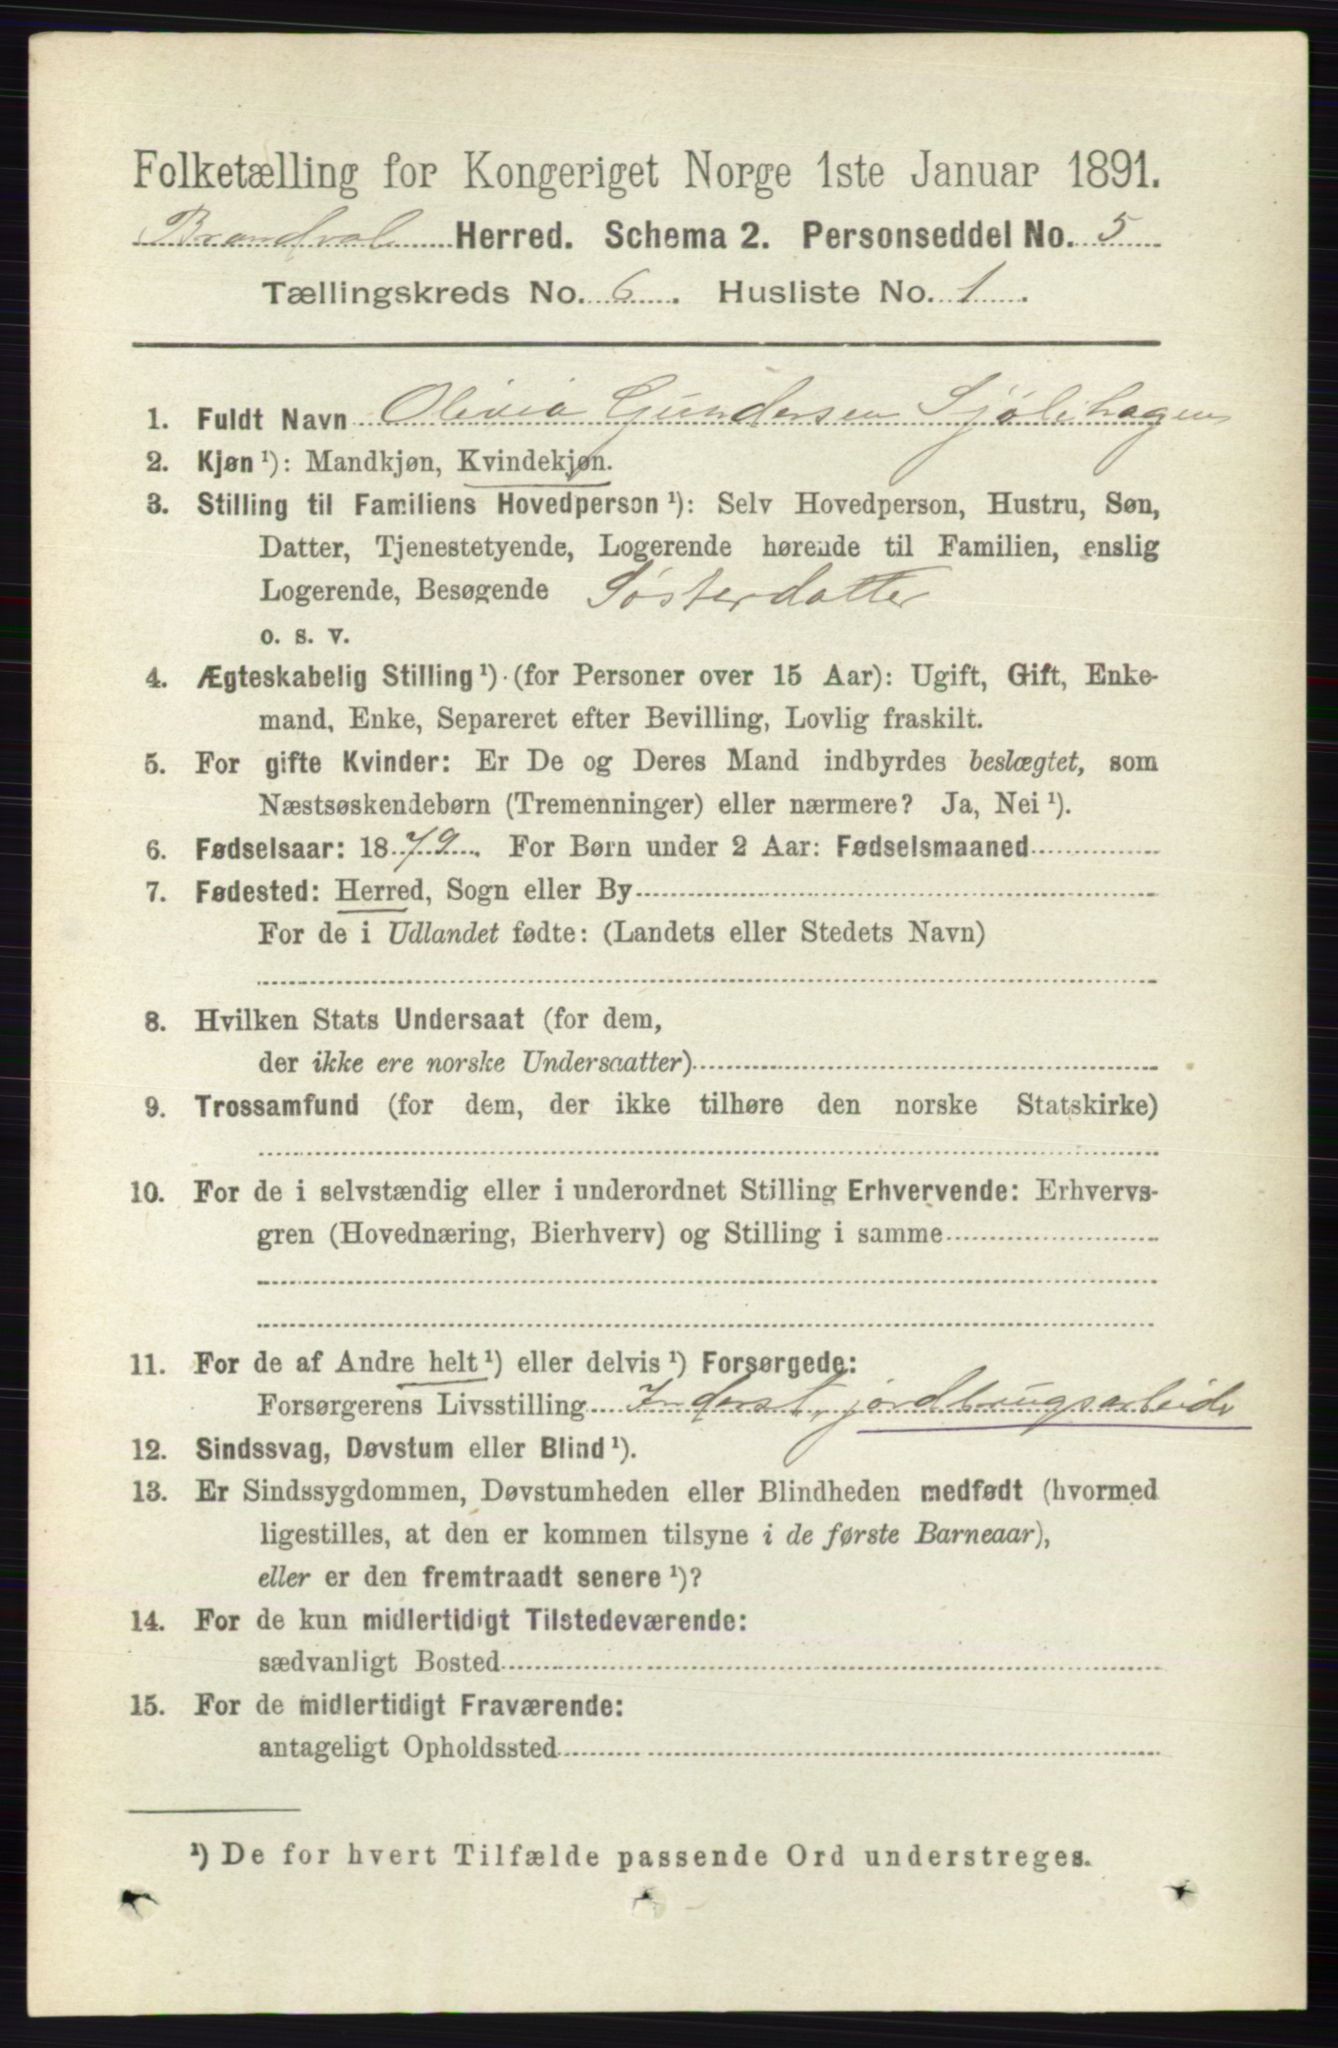 Folketælling for Kongeriget Norge 1ste Januar 1891.
Brandval Herred. Schema 2. Personseddel No. 5
Tællingskreds No. 6. Husliste No. 1.
1. Fuldt Navn Olivia Gundersen Sjölihagen
2. Kjøn ¹): Mandkjøn, Kvindekjøn.
3. Stilling til Familiens Hovedperson ¹): Selv Hovedperson, Hustru, Søn,
Datter, Tjenestetyende, Logerende hørende til Familien, enslig
Logerende, Besøgende Søsterdatter
o. s. v.
4. Ægteskabelig Stilling ¹) (for Personer over 15 Aar): Ugift, Gift, Enke-
mand, Enke, Separeret efter Bevilling, Lovlig fraskilt.
5. For gifte Kvinder: Er De og Deres Mand indbyrdes beslægtet, som
Næstsøskendebørn (Tremenninger) eller nærmere? Ja, Nei ¹).
6. Fødselsaar: 1879. For Børn under 2 Aar: Fødselsmaaned
7. Fødested: Herred, Sogn eller By
For de i Udlandet fødte: (Landets eller Stedets Navn)
8. Hvilken Stats Undersaat (for dem,
der ikke ere norske Undersaatter)
9. Trossamfund (for dem, der ikke tilhøre den norske Statskirke)
10. For de i selvstændig eller i underordnet Stilling Erhvervende: Erhvervs-
gren (Hovednæring, Bierhverv) og Stilling i samme
11. For de af Andre helt ¹) eller delvis ¹) Forsørgede:
Forsørgerens Livsstilling Inderst, jordbrugsarbeide
12. Sindssvag, Døvstum eller Blind ¹).
13. Er Sindssygdommen, Døvstumheden eller Blindheden medfødt (hvormed
ligestilles, at den er kommen tilsyne i de første Barneaar),
eller er den fremtraadt senere ¹)?
14. For de kun midlertidigt Tilstedeværende:
sædvanligt Bosted
15. For de midlertidigt Fraværende:
antageligt Opholdssted
¹) De for hvert Tilfælde passende Ord understreges.